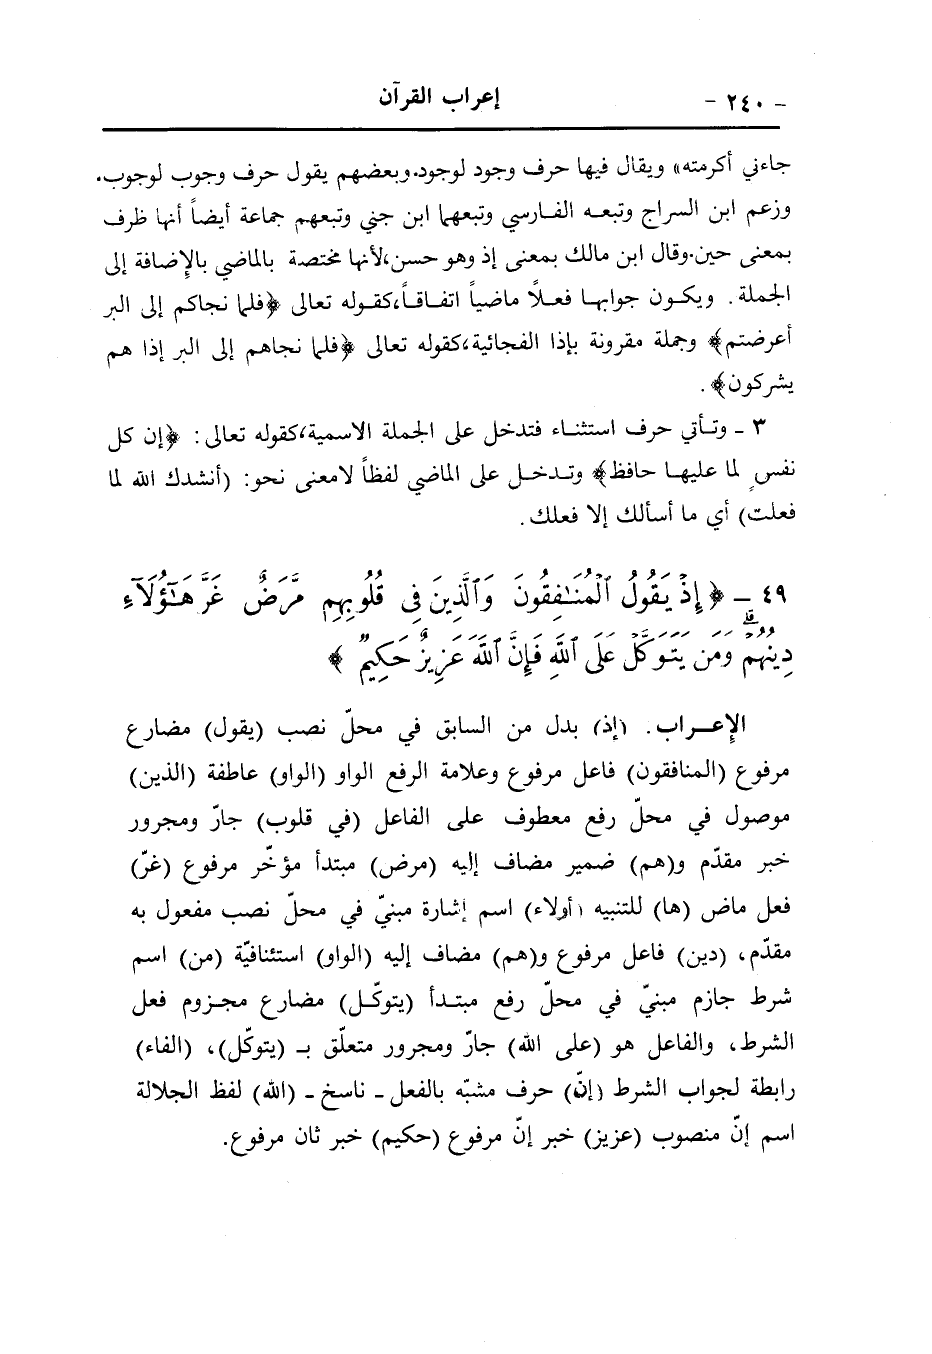 - ٢٤٠ -
إعراب القرآن
جاءني أكرمته» ويقال فيها حرف وجود لوجود.وبعضهم يقول حرف وجوب لوجوب.
وزعم ابن السراج وتبعه الفارسي وتبعهما ابن جني وتبعهم جماعة أيضاً أنها ظرف
بمعنى حين.وقال ابن مالك بمعنى إذ وهو حسن،لأنها مختصة بالماضي بالإضافة إلى
الجملة. ويكون جوابها فعلاً ماضياً اتفاقاً،كقوله تعالى ﴿فلما نجاكم إلى البر
أعرضتم﴾ وجملة مقرونة بإذا الفجائية،كقوله تعالى ﴿فلما نجاهم إلى البر إذا هم
يشركون﴾.
٣ ـ وتأتي حرف استثناء فتدخل على الجملة الاسمية،كقوله تعالى: ﴿إن كل
نفسٍ لما عليها حافظ﴾ وتدخل على الماضي لفظاً لامعنى نحو: (أنشدك الله لما
فعلت) أي ما أسألك إلا فعلك.
٤٩ ـ ﴿إِذْ يَقُولُ ٱلْمُنَٰفِقُونَ وَٱلَّذِينَ فِى قُلُوبِهِم مَّرَضٌ غَرَّ هَٰٓؤُلَآءِ
دِينُهُمْ ۗ وَمَن يَتَوَكَّلْ عَلَى ٱللَّهِ فَإِنَّ ٱللَّهَ عَزِيزٌ حَكِيمٌ ﴾
الإعراب. (إذ) بدل من السابق في محلّ نصب (يقول) مضارع
مرفوع (المنافقون) فاعل مرفوع وعلامة الرفع الواو (الواو) عاطفة (الذين)
موصول في محلّ رفع معطوف على الفاعل (في قلوب) جارّ ومجرور
خبر مقدّم و(هم) ضمير مضاف إليه (مرض) مبتدأ مؤخّر مرفوع (غرّ)
فعل ماض (ها) للتنبيه (أولاء) اسم إشارة مبنيّ في محلّ نصب مفعول به
مقدّم، (دين) فاعل مرفوع و(هم) مضاف إليه (الواو) استئنافيّة (من) اسم
شرط جازم مبنيّ في محلّ رفع مبتدأ (يتوكّل) مضارع مجزوم فعل
الشرط، والفاعل هو (على الله) جارّ ومجرور متعلّق بـ (يتوكّل)، (الفاء)
رابطة لجواب الشرط (إنّ) حرف مشبّه بالفعل ـ ناسخ ـ (الله) لفظ الجلالة
اسم إنّ منصوب (عزيز) خبر إنّ مرفوع (حكيم) خبر ثان مرفوع.